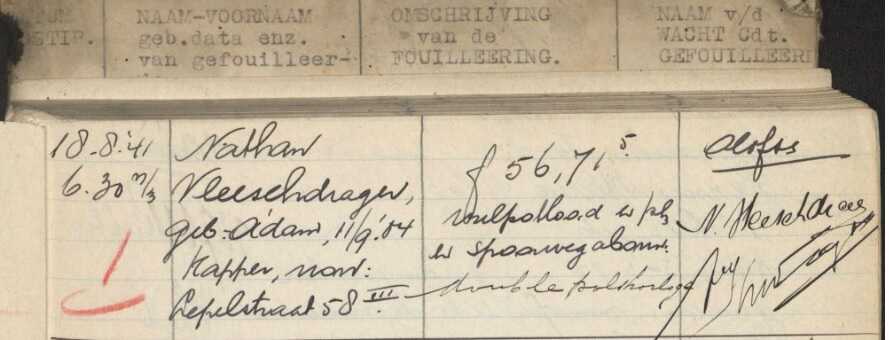 NAAM-VOORNAAM
geb.data enz.
van gefouilleer-
OMSCHRIJVING
van de
FOUILLEERING.
NAAM v/d
WACHT Cdt.
GEFOUILLEER
STIP.
18-8-'41
6.30
Nathan
Vleeschdrager,
geb. A'dam, 11/9'04
Kapper, won:
Lepelstraat 58 III
f 56,71⁵
vulpotlood
en spoorwegabonn.
double polshorloge
N. Vleeschdrager
1